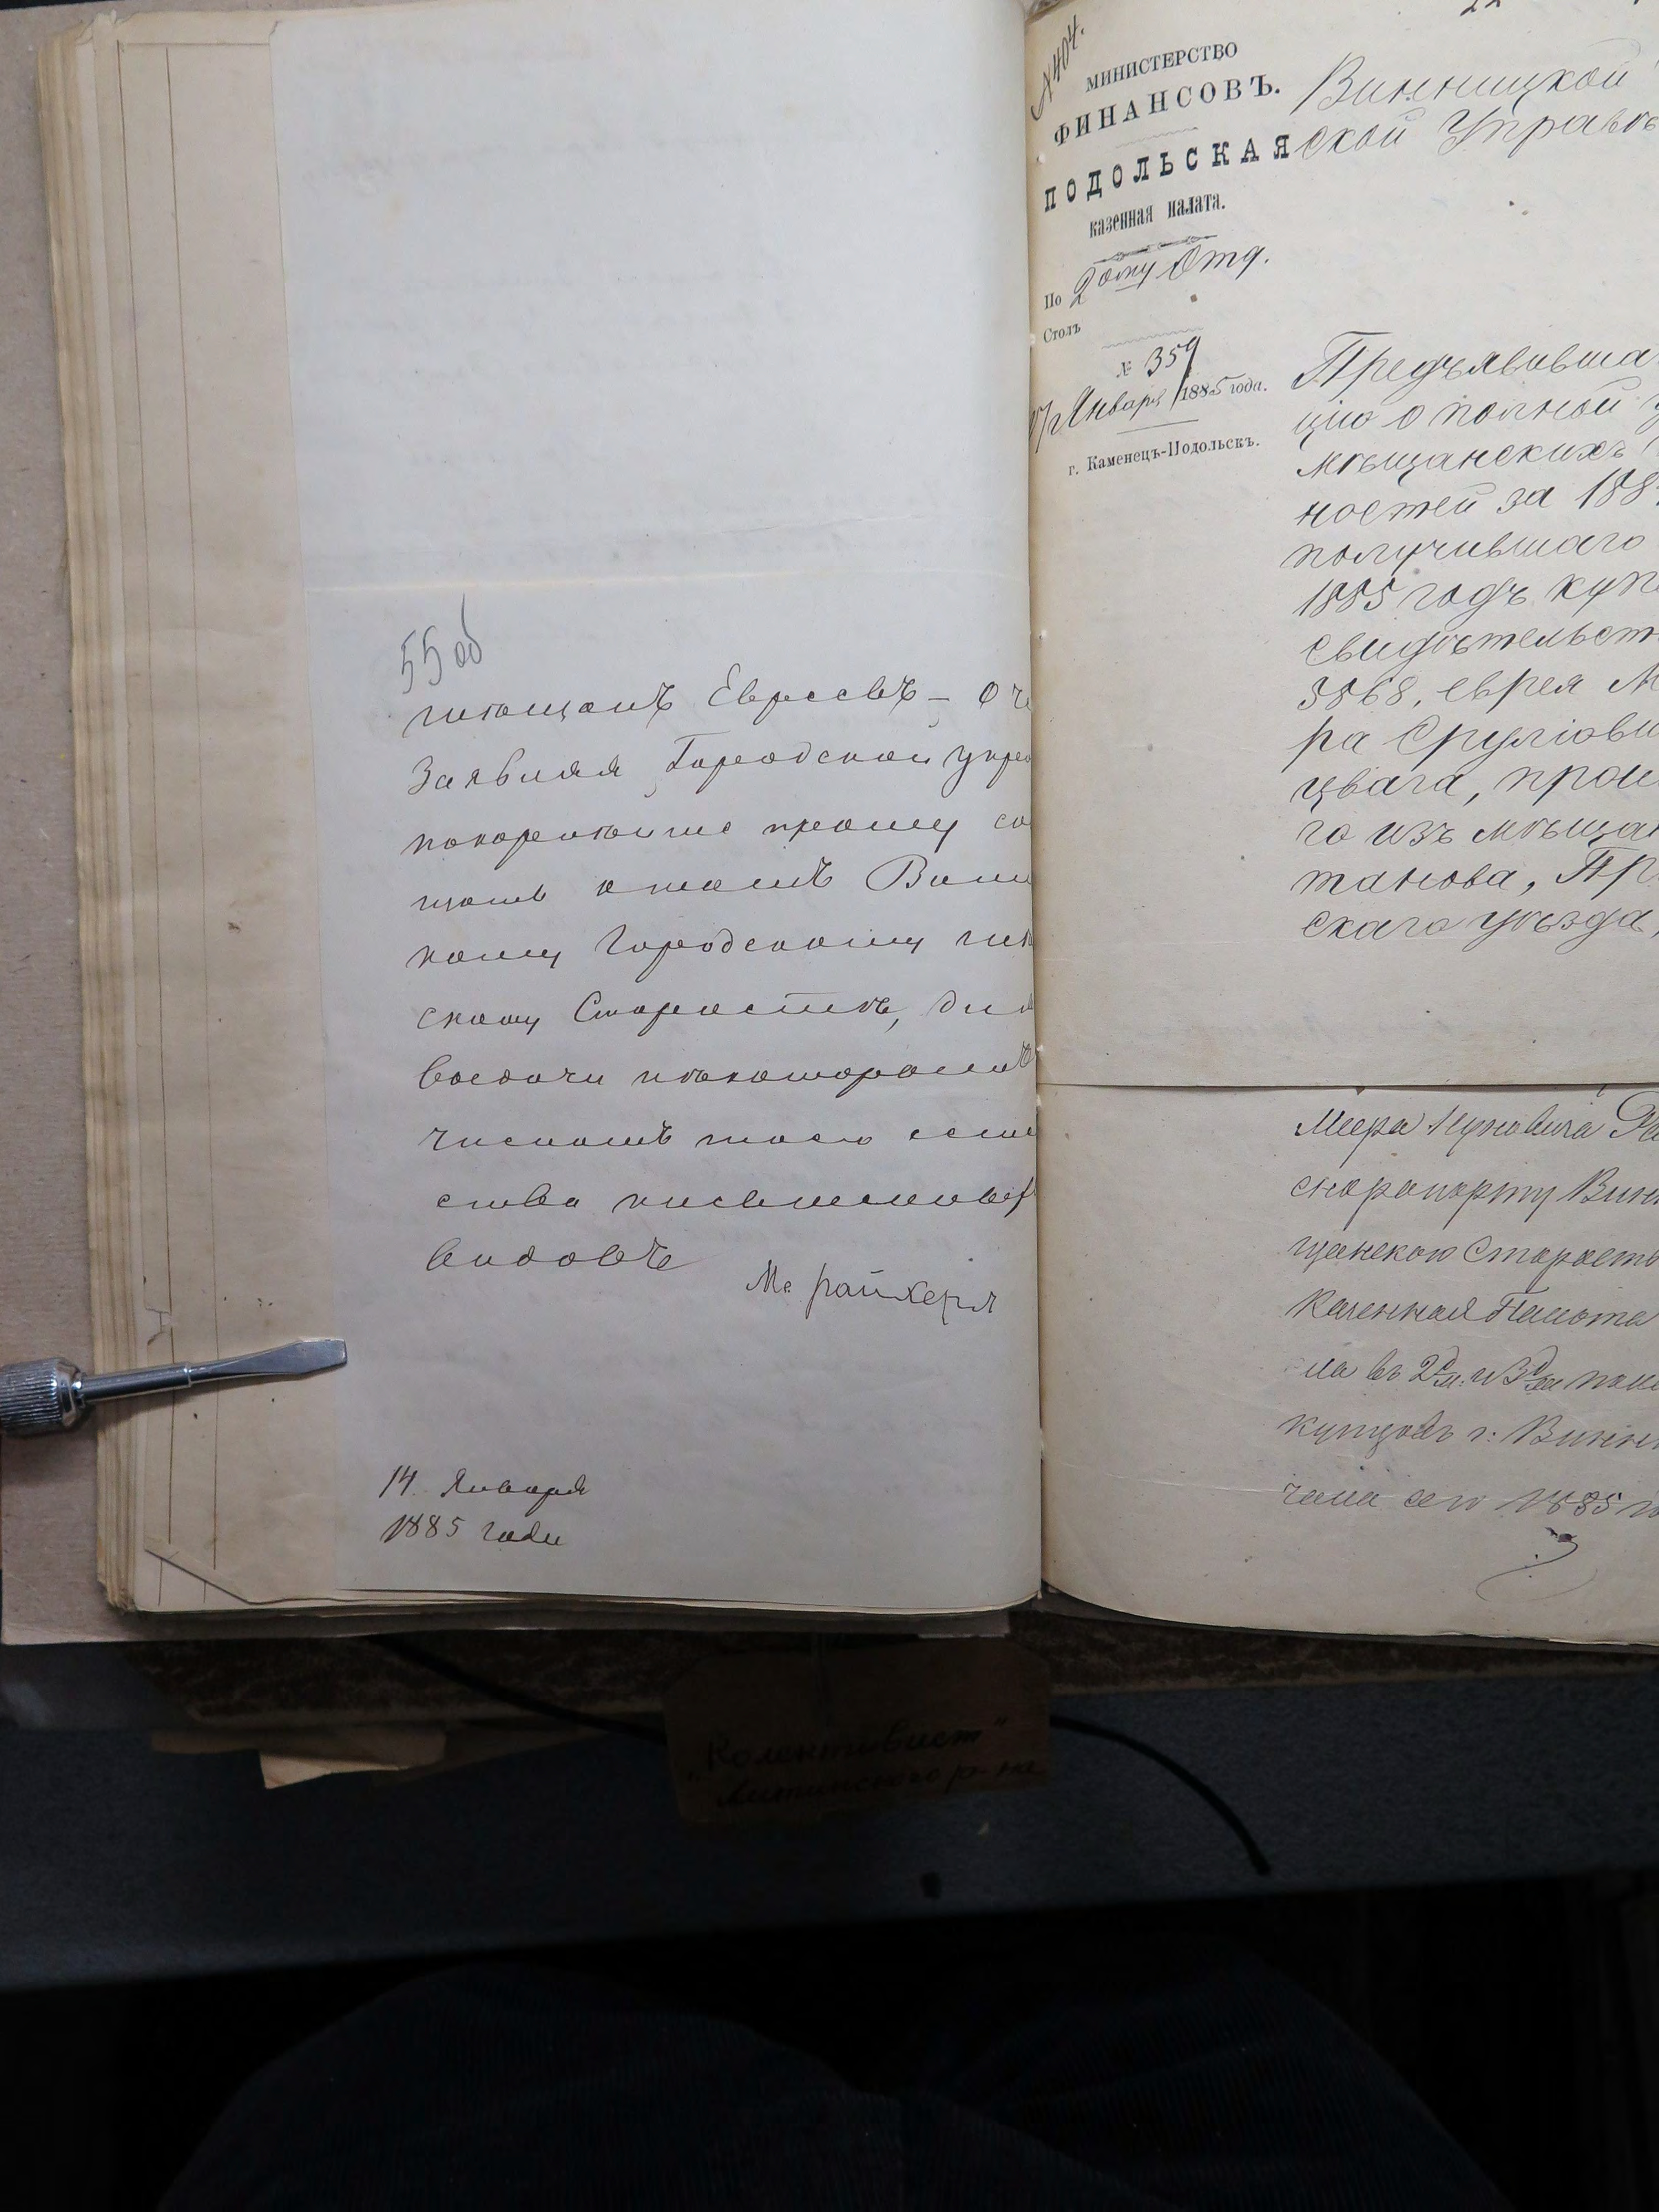 55 об
мѣщанъ Евреевъ – О че
Заявляя Городской Упра
покорнѣйше прошу со
щить о томъ Винн
кому Городскому мѣ
скому Старостѣ, для
выдачи нѣкоторымъ
числомъ того
ства письменныхъ
видовъ
М. Райхеръ
14 Января
1885 года
№ 404.
МИНИСТЕРСТВО
ФИНАНСОВЪ.
ПОДОЛЬСКАЯ
казенная палата.
По 2ому Отд.
Столъ
№ 359
17 Января 1885 года.
г. Каменецъ-Подольскъ.
22
Винницкой
ской Управѣ
Предъявивша
цію о полной у
мѣщанскихъ
ностей за 188
получившаго
1885 годъ купе
свидѣтельст
3868, еврея М
ра Сруліови
цвага, прои
го изъ мѣщан
танова, Пр
скаго уѣзда,
Меера Ра
старопорту Винн
щанскою Старость
Казенная Палата
ла въ 2й и 3й
купцовъ г. Винн
чала сего 1885 го
"Колективист"
Литинского р-на